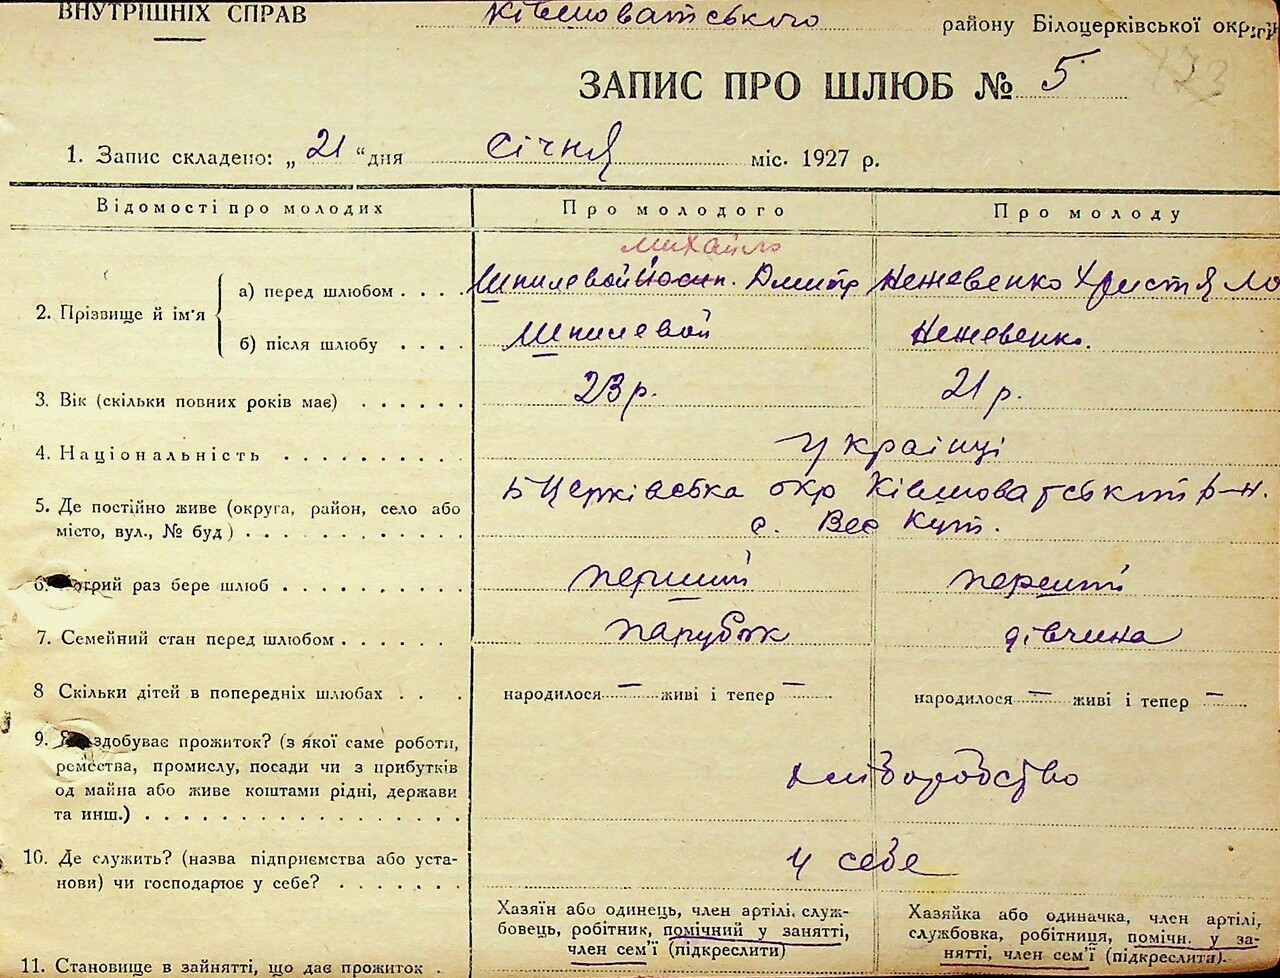 ВНУТРІШНІХ СПРАВ Ківшоватського району Білоцерківської округи
ЗАПИС ПРО ШЛЮБ № 5
1. Запис складено: „ 21 “ дня січня міс. 1927 р.
Відомості про молодих Про молодого Про молоду
Михайло
2. Прізвище й ім'я а) перед шлюбом . . . . Шпилевой Йосип. Дмитр Нежевенко Христя Ло
б) після шлюбу . . . . Шпилевой Нежевенко.
3. Вік (скільки повних років має) . . . . . . 23 р. 21 р.
4. Національність . . . . . . . . . українці
5. Де постійно живе (округа, район, село або Б Церківська окр Ківшоватський р-н.
місто, вул., № буд) . . . . . . . . . . с. Вес Кут.
6. трий раз бере шлюб . . . . . . . . . перший перший
7. Семейний стан перед шлюбом . . . . . . парубок дівчина
8 Скільки дітей в попередніх шлюбах . . . народилося — живі і тепер — народилося — живі і тепер —
9. здобуває прожиток? (з якої саме роботи,
ремества, промислу, посади чи з прибутків хліборобство
од майна або живе коштами рідні, держави
та инш.) . . . . . . . . . . . . . . .
10. Де служить? (назва підприємства або уста- у себе
нови) чи господарює у себе? . . . . . . .
Хазяїн або одинець, член артілі, служ- Хазяйка або одиначка, член артілі,
бовець, робітник, помічний у занятті, службовка, робітниця, помічн. у за-
член сем'ї (підкреслити) нятті, член сем'ї (підкреслити).
11. Становище в зайнятті, що дає прожиток .